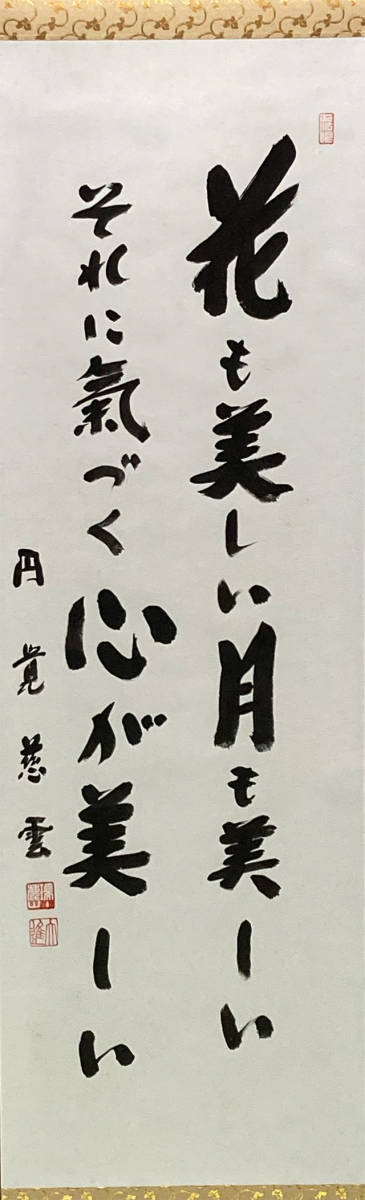 花も美しい月も美しい
それに氣づく心が美しい
円覚慈雲